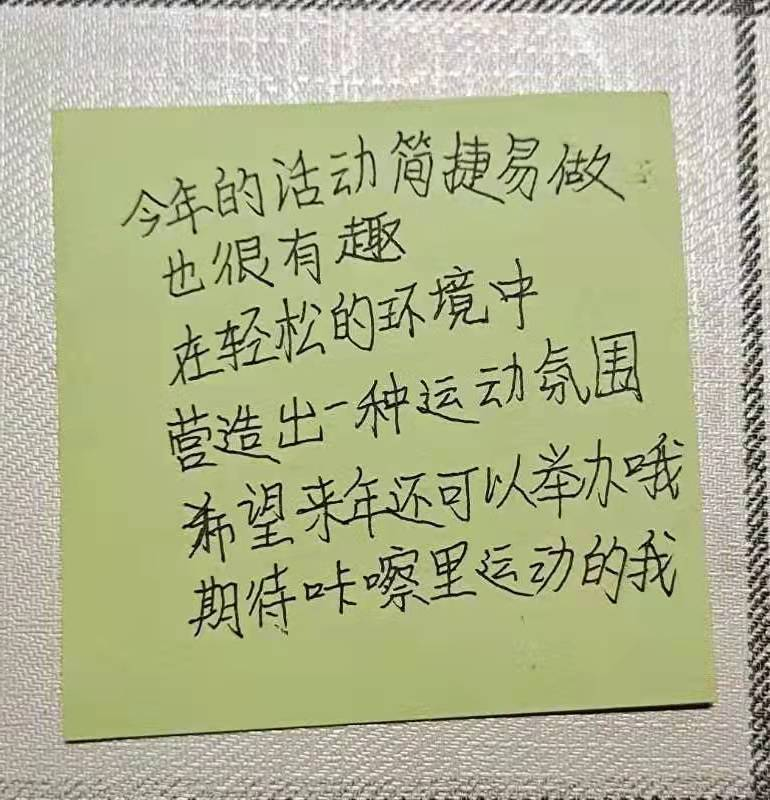 今年的活动简捷易做
也很有趣
在轻松的环境中
营造出一种运动氛围
希望来年还可以举办哦
期待咔嚓里运动的我